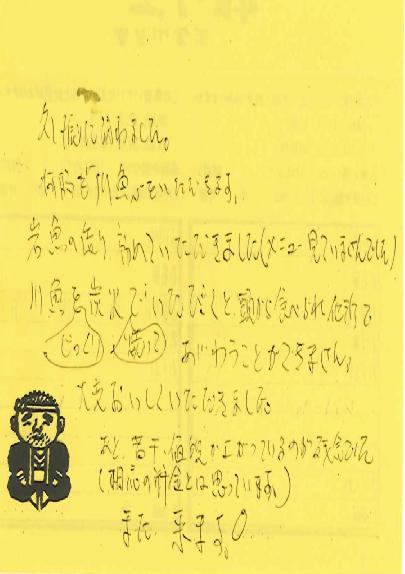 久し振りに伺いました。
何時も川魚をいただきます。
岩魚の 初めていただきました(メニュー見ていませんでした)
川魚を炭火でいただくと、頭から食べられ他所で
じっくり 焼いて あじわうことができません。
大変おいしくいただきました。
あと、若干、値段が上がっているのが残念でした
(相応の料金とは思っています。)
また、来ます。